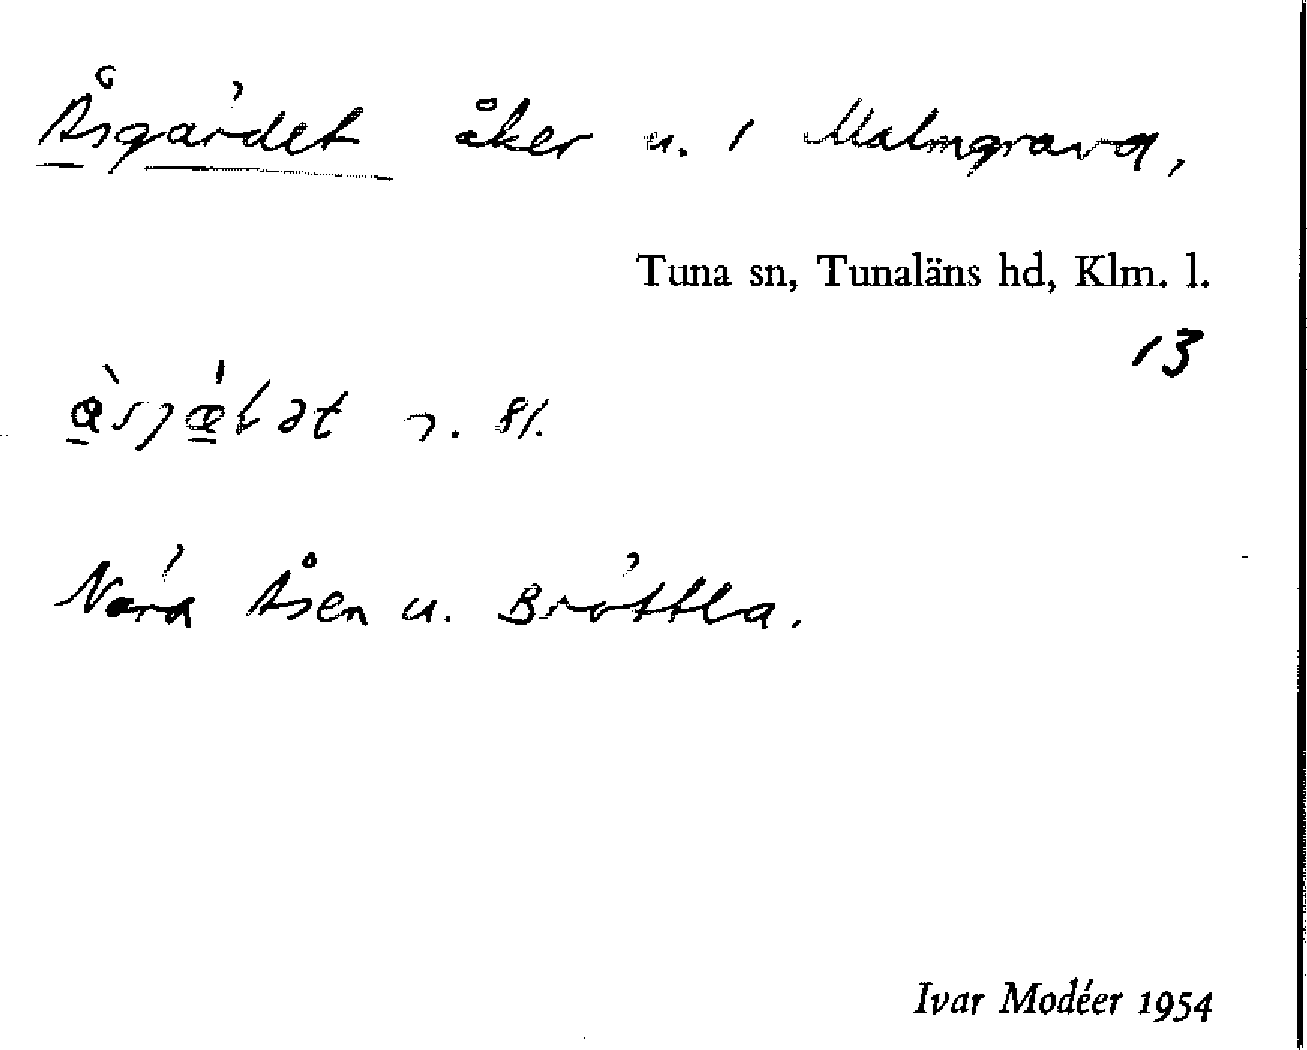 Åsgärdet åker u. 1 Malmgrava,
Tuna sn, Tunaläns hd, Klm. l.
13
n. 81.
Nära Åsen u. Bröttla.
Ivar Modéer 1954